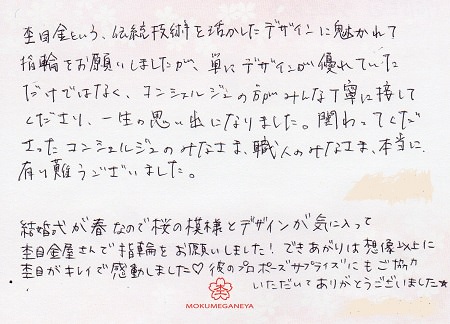 杢目金という、伝統技術を活かしたデザインに魅かれて
指輪をお願いしましたが、単にデザインが優れていた
だけではなく、コンシェルジュの方がみんな丁寧に接して
くださり、一生の思い出になりました。関わってくだ
さったコンシェルジュのみなさま、職人のみなさま、本当に
有り難うございました。
結婚式が春なので桜の模様とデザインが気に入って
杢目金屋さんで指輪をお願いしました！できあがりは想像以上に
杢目がキレイで感動しました♡彼のプロポーズサプライズにもご協力
いただいてありがとうございました☆
MOKUMEGANEYA